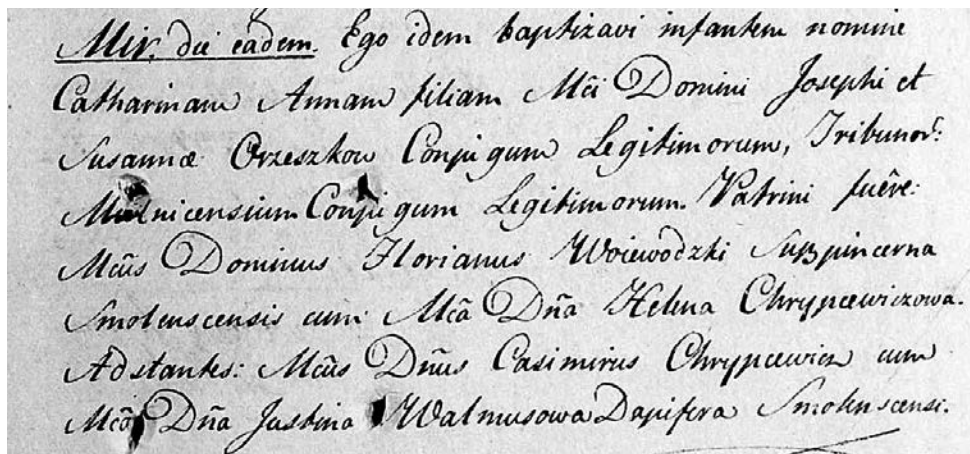 Mir, die eadem. Ego idem baptizavi infantem nomine
Catharinam Annam filiam Mci Domini Josephi et
Susannæ Orzeszkow Conjugum Legitimorum, Tribunor:
Conjugum Legitimorum. Patrini fuêre:
Mcus Dominus Florianus Woiewodzki Subpincerna
Smolenscensis cum Mcã Dña Helena Chrypcewiczowa.
Adstantes: Mcus Dñus Casimirus Chrypcewicz cum
Mcã Dña Justina Walmusowa Dapifera Smolenscensi.